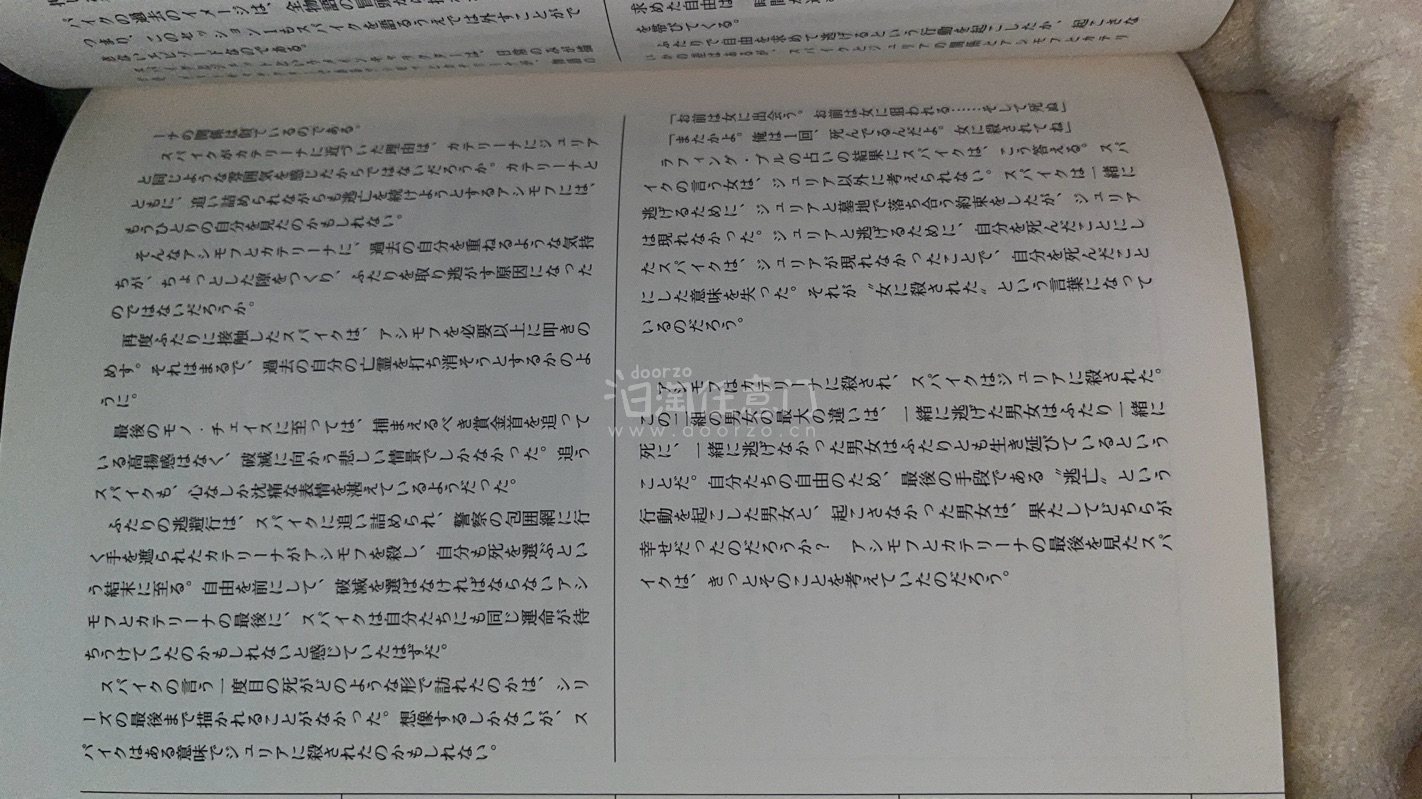 パイクの過去のイメージは、全物語の冒頭から
つまり、このセッション1もスパイクを語るうえでは外すことがで
きないエピソードなのである。
求めた自由は
を帯びてくる。
ふたりで自由を求めて逃げるという行動を起こしたか、起こさな
いかの差はあるが、スパイクとジュリアの関係とアシモフとカテリ
ーナの関係は似ているのである。
スパイクがカテリーナに近づいた理由は、カテリーナにジュリア
と同じような雰囲気を感じたからではないだろうか。カテリーナと
ともに、追い詰められながらも逃亡を続けようとするアシモフには、
もうひとりの自分を見たのかもしれない。
そんなアシモフとカテリーナに、過去の自分を重ねるような気持
ちが、ちょっとした隙をつくり、ふたりを取り逃がす原因になった
のではないだろうか。
再度ふたりに接触したスパイクは、アシモフを必要以上に叩きの
めす。それはまるで、過去の自分の亡霊を打ち消そうとするかのよ
うに。
最後のモノ・チェイスに至っては、捕まえるべき賞金首を追って
いる高揚感はなく、破滅に向かう悲しい情景でしかなかった。追う
スパイクも、心なしか沈痛な表情を湛えているようだった。
ふたりの逃避行は、スパイクに追い詰められ、警察の包囲網に行
く手を遮られたカテリーナがアシモフを殺し、自分も死を選ぶとい
う結末に至る。自由を前にして、破滅を選ばなければならないアシ
モフとカテリーナの最後に、スパイクは自分たちにも同じ運命が待
ちうけていたのかもしれないと感じていたはずだ。
スパイクの言う一度目の死がどのような形で訪れたのかは、シリ
ーズの最後まで描かれることがなかった。想像するしかないが、ス
パイクはある意味でジュリアに殺されたのかもしれない。
「お前は女に出会う。お前は女に狙われる……そして死ぬ」
「またかよ。俺は1回、死んでるんだよ。女に殺されてね」
ラフィング・ブルの占いの結果にスパイクは、こう答える。スパ
イクの言う女は、ジュリア以外に考えられない。スパイクは一緒に
逃げるために、ジュリアと墓地で落ち合う約束をしたが、ジュリア
は現れなかった。ジュリアと逃げるために、自分を死んだことにし
たスパイクは、ジュリアが現れなかったことで、自分を死んだこと
にした意味を失った。それが〝女に殺された〟という言葉になって
いるのだろう。
アシモフはカテリーナに殺され、スパイクはジュリアに殺された。
この二組の男女の最大の違いは、一緒に逃げた男女はふたり一緒に
死に、一緒に逃げなかった男女はふたりとも生き延びているという
ことだ。自分たちの自由のため、最後の手段である〝逃亡〟という
行動を起こした男女と、起こさなかった男女は、果たしてどちらが
幸せだったのだろうか？　アシモフとカテリーナの最後を見たスパ
イクは、きっとそのことを考えていたのだろう。
doorzo
泊淘任意门
www.doorzo.cn